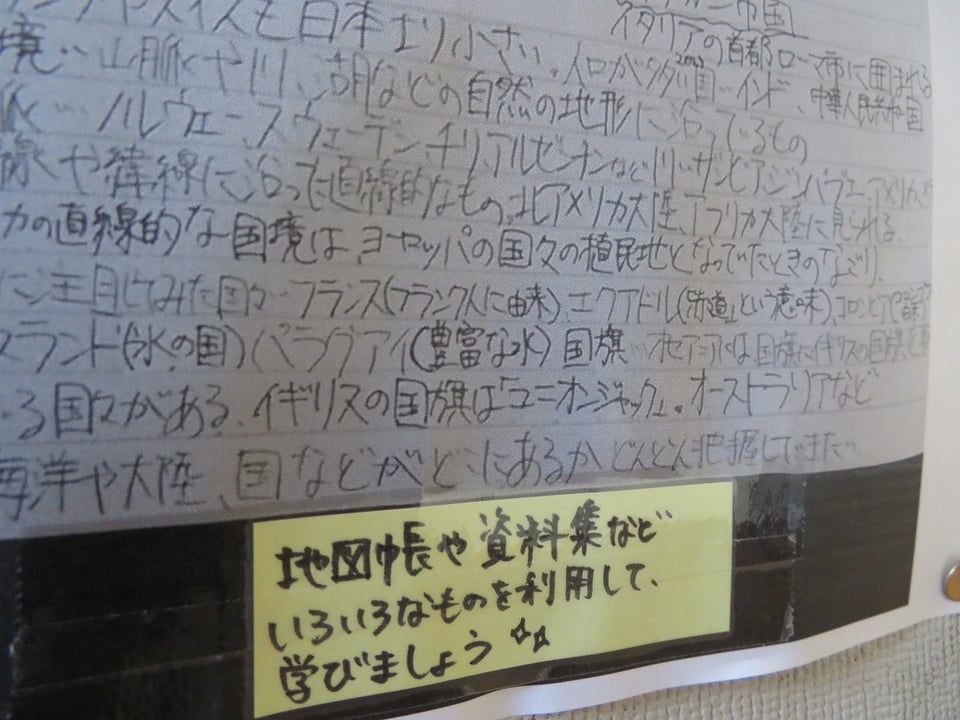 も日本より小さい。
イタリアの首都ローマ市に囲まれる
境…山脈や川、湖などの自然の地形に沿っているもの
人口が多い国…インド、中華人民共和国
ノルウェー、スウェーデン、チリ、アルゼンチンなど 川…ザンビア、ジンバブエ、アメリカ
線や緯線に沿った直線的なもの。北アメリカ大陸、アフリカ大陸に見られる。
カの直線的な国境は、ヨーロッパの国々の植民地となっていたときのなごり。
に注目してみた国々…フランス(フランク人に由来)、エクアドル(「赤道」という意味)、コロンビア
ランド(氷の国)パラグアイ(豊富な水) 国旗…オセアニアには国旗にイギリスの国旗
る国々がある。イギリスの国旗は「ユニオンジャック」。オーストラリアなど
海洋や大陸、国などがどこにあるかどんどん把握していきたい
地図帳や資料集など
いろいろなものを利用して、
学びましょう☆☆